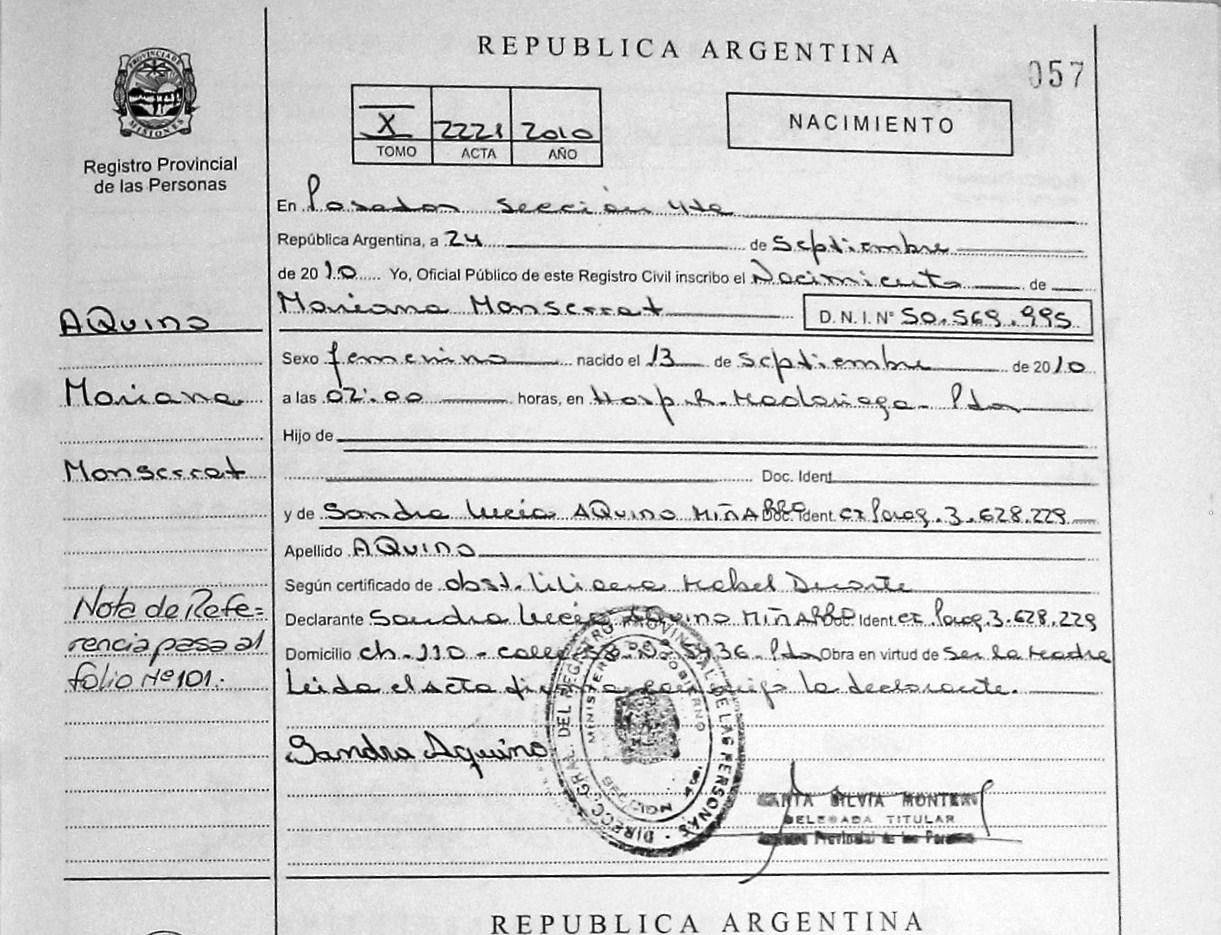 REPUBLICA ARGENTINA
057
PROVINCIA DE MISIONES
Registro Provincial
de las Personas
X 2221 2010
TOMO ACTA AÑO
NACIMIENTO
En Posadas Sección 4ta
República Argentina, a 24 de Septiembre
de 2010 Yo, Oficial Público de este Registro Civil inscribo el Nacimiento de
Mariana Monserrat D.N.I. Nº 50.569.995
Sexo femenino nacido el 13 de Septiembre de 2010
a las 02:00 horas, en Hosp. R. Madariaga - Pdas
Hijo de
Doc. Ident
y de Sandra Lucía AQuino MiÑARRO Doc. Ident. CI Parag. 3.628.229
Apellido AQuino
Según certificado de obst. Liliana Mabel Duarte
Declarante Sandra Lucía AQuino MiÑARRO Ident. CI Parag. 3.628.229
Domicilio Ch. 110 - calle Pdas Obra en virtud de Ser la Madre
Leida el Acta la declarante.
Sandra Aquino
AQuino
Mariana
Monserrat
Nota de Refe=
rencia pasa al
folio Nº 101:
DIRECC. GRAL. DEL REGISTRO PROVINCIAL DE LAS PERSONAS
MINISTERIO DE GOBIERNO
SILVIA MONTERO
DELEGADA TITULAR
Registro Provincial de las Personas
REPUBLICA ARGENTINA